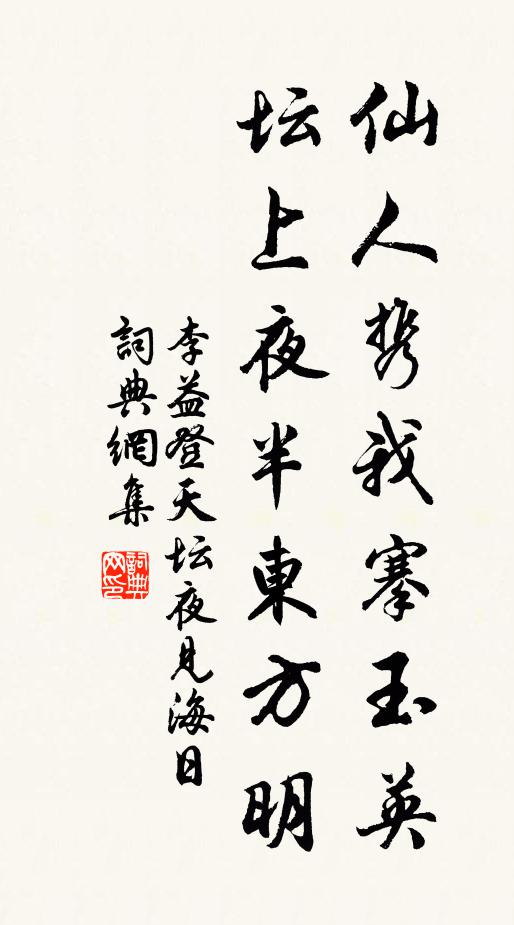 仙人携我搴玉英
坛上夜半東方明
李益登天坛夜見海日
詞典網集
詞典網印